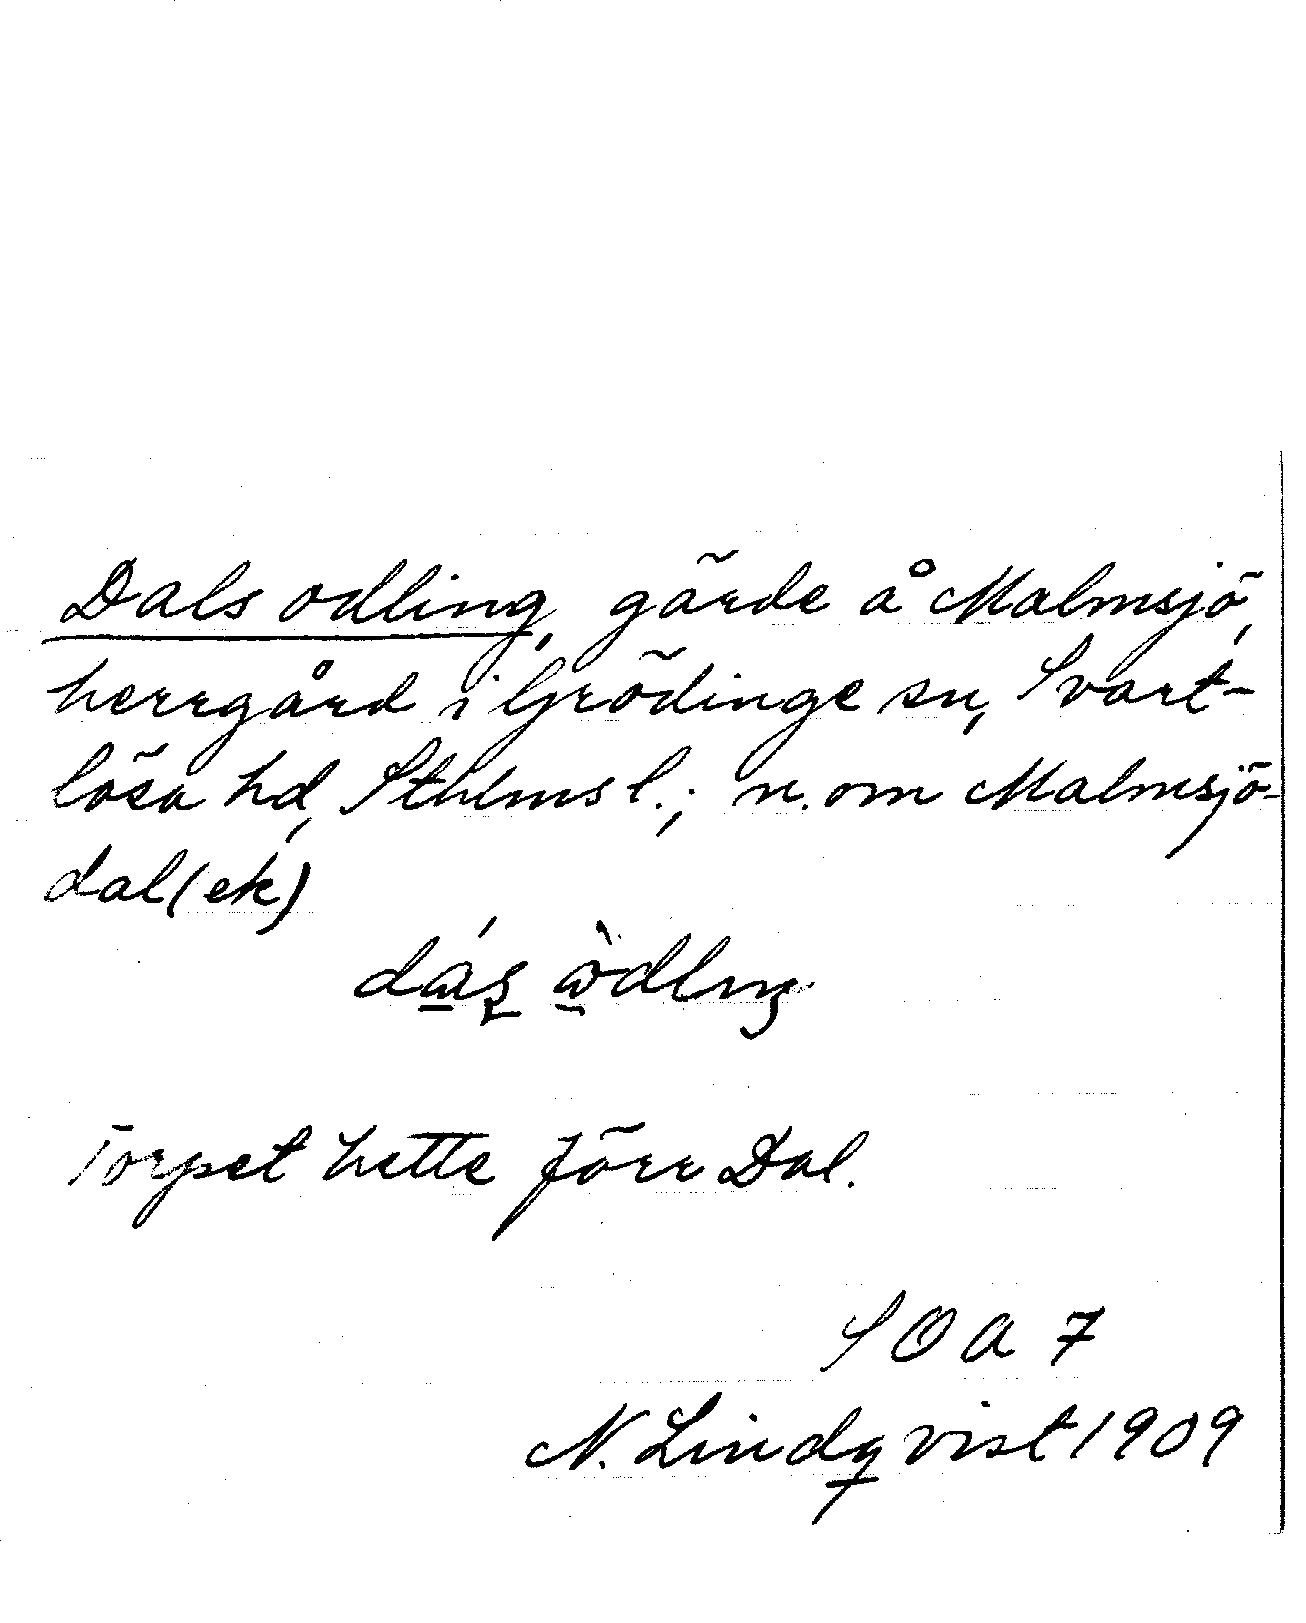 Dals odling, gärde å Malmsjö,
herrgård i Grödinge sn, Svart-
lösa hd, Sthlms l.; n. om Malmsjö-
dal (ek)
Torpet hette förr Dal.
SOA 7
N. Lindqvist 1909